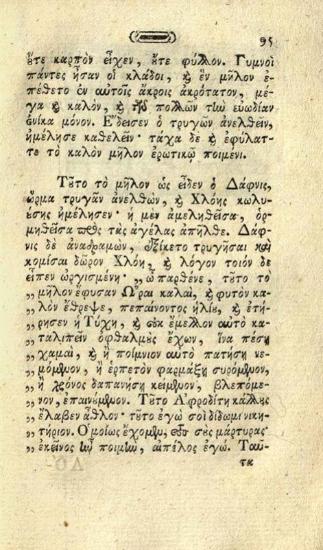 95
ὔτε καρπὸν εἶχεν, ὔτε φύλλον. Γυμνοὶ
πάντες ἦσαν οἱ κλάδοι, ϗ ἓν μῆλον ἐ-
πέθετο ἐν αὐτοῖς ἄκροις ἀκρότατον, μέ-
γα ϗ καλὸν, ϗ τῶν πολλῶν τὴν εὐωδίαν
ἐνίκα μόνον. Ἔδεισεν ὁ τρυγῶν ἀνελθεῖν,
ἠμέλησε καθελεῖν· τάχα δὲ ϗ ἐφύλατ-
τε τὸ καλὸν μῆλον ἐρωτικῷ ποιμένι.
Τῦτο τὸ μῆλον ὡς εἶδεν ὁ Δάφνις,
ὥρμα τρυγᾶν ἀνελθὼν, ϗ Χλόης κωλυ-
ύσης ἠμέλησεν· ἡ μὲν ἀμεληθεῖσα, ὀρ-
μηθεῖσα πρὸς τὰς ἀγέλας ἀπῆλθε. Δάφ-
νις δὲ ἀναδραμὼν, ἐξίκετο τρυγῆσαι καὶ
κομίσαι δῶρον Χλόῃ, ϗ λόγον τοιόνδε
εἶπεν ὠργισμένῃ· „ ὦ παρθένε, τῦτο τὸ
„ μῆλον ἔφυσαν Ὧραι καλαὶ, ϗ φυτὸν κα-
„ λὸν ἔθρεψε, πεπαίνοντος ἡλίυ, ϗ ἐτή-
„ ρησεν ἡ Τύχη, ϗ ὐκ ἔμελλον αὐτὸ κα-
„ ταλιπεῖν ὀφθαλμὺς ἔχων, ἵνα πέσῃ
„ χαμαὶ, ϗ ἢ ποίμνιον αὐτὸ πατήσῃ νε-
„ μόμενον, ἢ ἑρπετὸν φαρμάξῃ συρόμενον,
„ ἢ χρόνος δαπανήσῃ κείμενον, βλεπόμε-
„ νον, ἐπαινύμενον. Τῦτο Ἀφροδίτη κάλλυς
„ ἔλαβεν ἆθλον· τῦτο ἐγὼ σοὶ δίδωμι νικη-
„ τήριον. Ὁμοίως ἔχομεν, τὺς σὺς μάρτυρας·
„ ἐκεῖνος ἦν ποιμὴν, αἰπόλος ἐγώ. Ταῦ-
τα